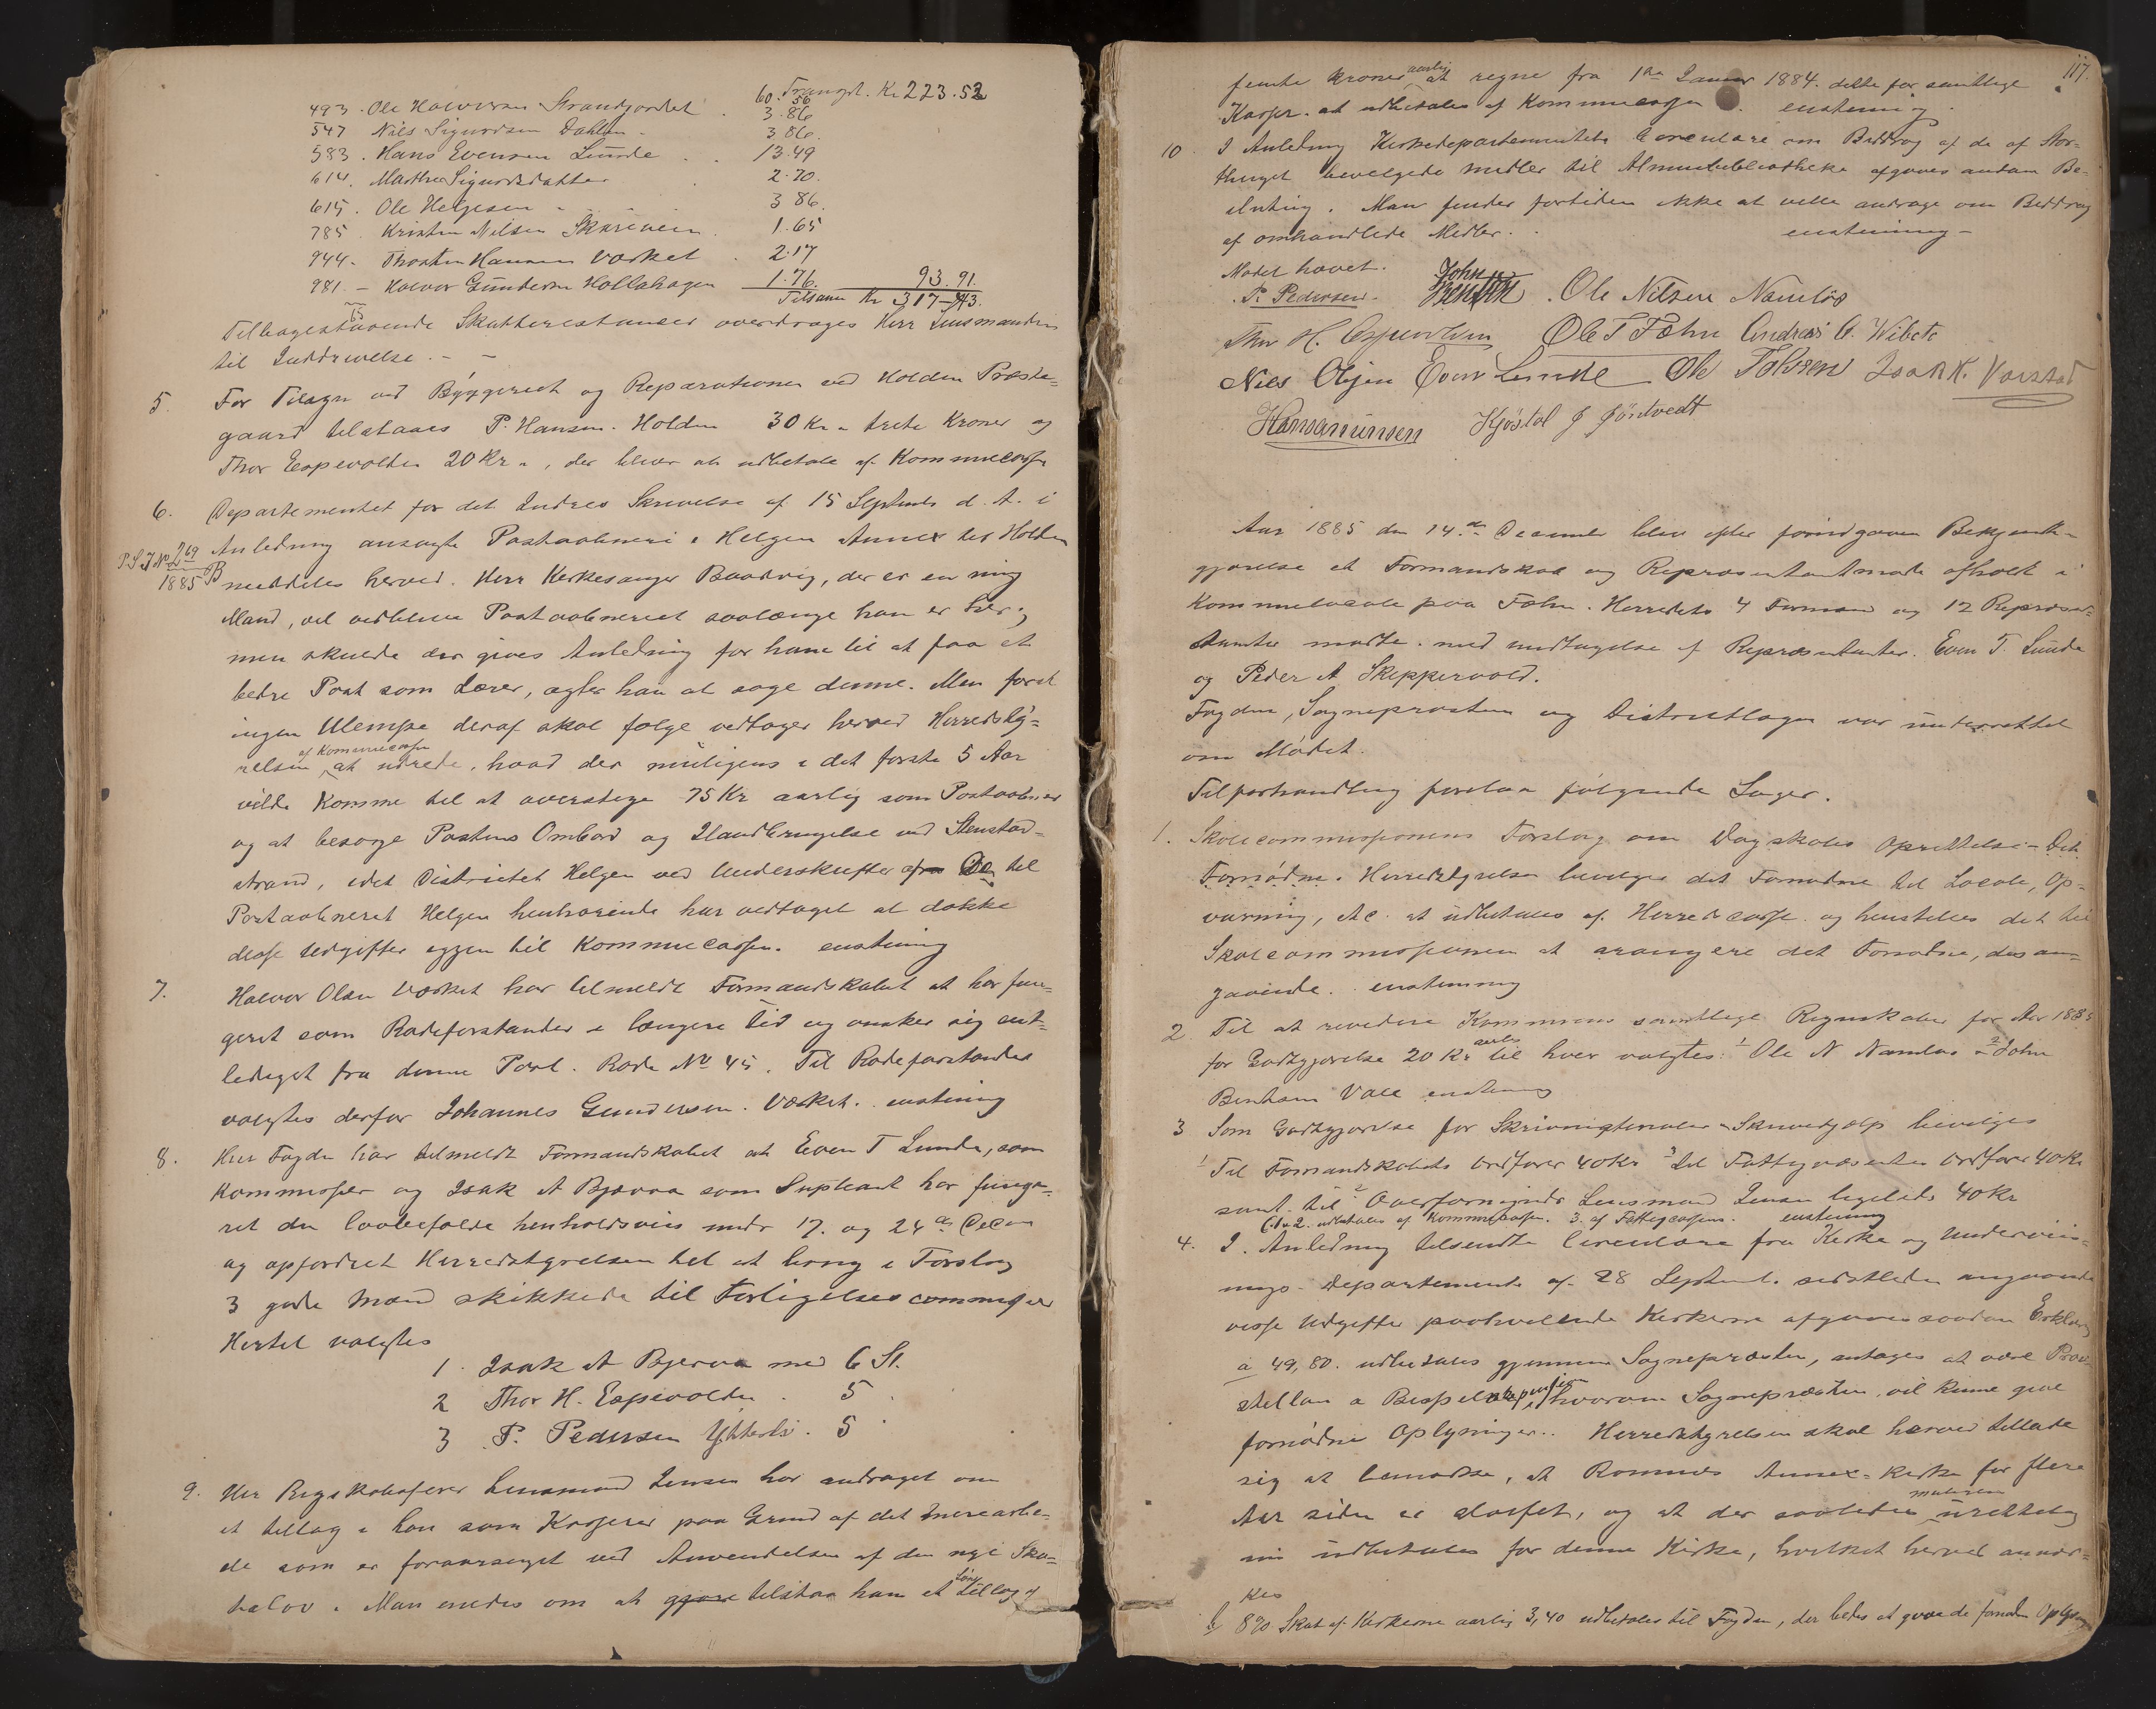 Transport. Kr 223.52
493. Ole Halvorsen Strandjordet . 60. 56
547 Niels Sigurdsen Dahlen - 3.86
583. Hans Evensen Lunde . . 3 86.
614. Marthe Sigurdsdatter 13.49
615. Ole Helgesen - 2.70.
785. Kristen Nilsen Skareveien . 3 86.
944. Thorsten Hansen Værket . 1.65
981. - Halvor Gundersen Hollahagen 2.17
1.76. 93.91
Tilsam Kr 317-43.
Tilbagestaaende Skatterestancer overdrages Herr Lensmanden
til Inddrivelse. - -
5. For Tilsyn ved Byggeriet og Reparationer ved Holden Præste-
gaard tilstaaes P. Hansen. Holden 30 Kr - trete Kroner og
Thor Espevolden 20 Kr -, der bliver at udbetale af Kommunecassen
6. Departementet for det Indres Skrivelse af 15 Septembr d. A. i
Anledning ansøgte Postaabneri i Helgen Annex til Holden
P S J No 269
1885 B
meddeles herved. Herr Kirkesanger Baadvig, der er en ung
Mand, vil vedblive Postaabneriet saalænge han er her;
men skulde der gives Anledning for ham til at faa et
bedre Post som Lærer, agter han at søge denne. Men forat
ingen Ulempe deraf skal følge vedtager herved Herredsty-
relsen af Kommunecassen at udrede, hvad der muligens i det første 5 Aar
vilde komme til at overstige 75 Kr aarlig som Postaabner
og at besørge Postens Ombord og Ilandbringelse ved Stenstad-
strand, idet Districtet Helgen ved Underskrifter af De til
Postaabneriet Helgen henhørende har vedtaget at dække
disse Udgifter iggjen til Kommunecassen. enstemig
7. Halvor Olsen Værket har tilmeldt Formandskabet at har fun-
geret som Rodeforstander i længere tid og ønsker sig ent-
lediget fra denne Post. Rode No 45. Til Rodeforstander
valgtes derfor Johannes Gundersen. Værket. enstemig
8. Herr Fogden har tilmeldt Formandskabet at Even T Lunde, som
Kommissær og Isak A Bjerva som Supleant har funge-
ret den lovbefalede henholdsvis under 17. og 24de Decem
og opfordret Herredstyrelsen til at bringe i Forslag
3 gode Mænd skikkede til Forligelsescommissær
Hertil valgtes
1. Isak A Bjerva med 6 St.
2 Thor H. Espevolden . 5 .
3 P. Pedersen Ytterbø . 5 .
9. Herr Regnskabsfører Lensmand Jensen har andraget om
et tillæg i Løn som Kasserer paa Grund af det merearbei-
de som er foraarsaget ved Anvendelsen af den nye Skat-
telov. Man enedes om at tilstaa ham et Løns tillæg af
117.
femte kroner aarlig at regne fra 1ste Januar 1884. dette for samtlige
Kasser. at udbetales af Kommunecassen . enstemig.
10. I Anledning Kirkedepartementets Circulære om Bidrag af de af Stor-
thinget bevilgede midler til Almuebibliotheker afgaves saadan Be-
slutning. Man finder fortiden ikke at ville andrage om Bidrag
af omhandlede Midler. . enstemig -
Mødet hævet.
P. Pedersen. John Bentsen. Ole Nilsen Namløs
Thor H. Espevolden Ole T Føhn Andreas A. Wibeto
Niels Olsen Even Lunde Ole Tolvsen Isak K. Vaistad
Hans Hansen Kjøstol J Jöntvedt
Aar 1885 den 14de December blev efter forudgaaen Bekjendt-
gjørelse et Formandskab og Repræsentantmøde afholdt i
Kommunelocale paa Føhn. Herredets 4 Formænd og 12 Repræsen-
tanter mødte. med undtagelse af Repræsentanter. Even T. Lunde
og Peder A Skippervold.
Fogden, Sognepresten og Districtlægen var underrettet
om Mødet.
Til forhandling forelaa følgende Sager.
1. Skolecommissionens Forslag om Dagskoles Oprettelse - Det
Fornødne. Herredstyrelsen beviliges det Fornødne til Locale, Op-
varming, etc. at udbetales af Herredscasse. og henstilles det til
Skolecommissionen at arangere det Fornødne, desan-
gaaende. enstemig
2. Til at revidere Kommunens samtlige Regnskaber for Aar 1885
for Godtgjørelse 20 Kr aarlig til hver valgtes: 1 Ole N Namløs - 2 John
Bentsen Vale enstemig
3 Som Godtgjørelse for Skrivmaterialer - Skrivehjælp bevilges
1 Til Formandskabets Ordfører 40 Kr 3 til Fattigvæsenets Ordfører 40 Kr
samt til 2 Overformynder Lensmand Jensen ligeledes 40 Kr
1 & 2. udbetales af Kommunecassen. 3. af Fattigcassen. enstemig
4. I Anledning tilsendte Circulære fra Kirke og Undervis-
nings-Departementet af 28 Septemb. sidstleden angaaende
visse Udgifter paahvilende Kirkerne afgaves saadan Erklæring
a 49,80. udbetales gjennem Sognepræsten, antages at være Prov-
stellan a Bispelspensjon, hvorom Sognepræsten vil kunne give
fornødne Oplysninger.. Herredstyrelsen skal herved tillade
sig at bemærke, at Romnes Annex-kirke for flere
Aar siden er sløifet, og at der saaledes urettelig
nu udbetales for denne Kirke, hvilket herved anmær-
kes
b 8 20 Skat af Kirkerne aarlig 3,40 udbetales til Fogden, der bedes at give de fornødne Oplysning